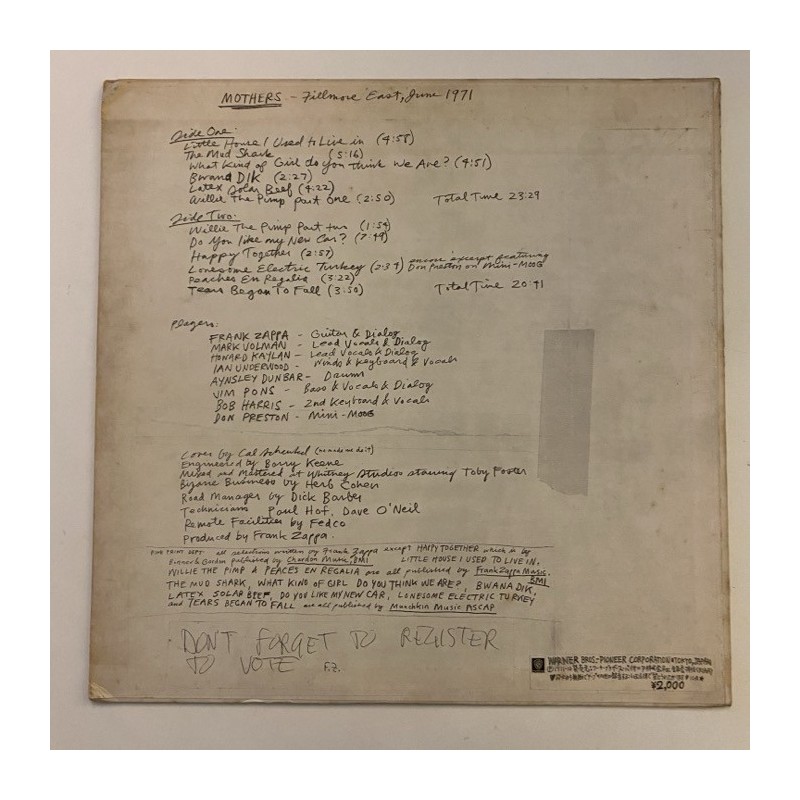 MOTHERS - Fillmore East, June 1971
Side One:
Little House I Used to Live in (4:58)
The Mud Shark (5:16)
What Kind of Girl do you think We Are? (4:51)
Bwana Dik (2:27)
Latex Solar Beef (4:22)
Willie The Pimp part one (2:50) Total Time 23:29
Side Two:
Willie The Pimp Part two (1:54)
Do You like my New Car? (7:49)
Happy Together (2:57)
Lonesome Electric Turkey (2:34) encore excerpt featuring Don Preston on Mini-MOOG
Peaches En Regalia (3:22)
Tears Began To Fall (3:50) Total Time 20:41
Players:
FRANK ZAPPA - Guitar & Dialog
MARK VOLMAN - Lead Vocals & Dialog
HOWARD KAYLAN - Lead Vocals & Dialog
IAN UNDERWOOD - Winds & Keyboard & Vocals
AYNSLEY DUNBAR - Drums
JIM PONS - Bass & Vocals & Dialog
BOB HARRIS - 2nd Keyboard & Vocals
DON PRESTON - Mini-MOOG
Cover by Cal Schenkel (he made me do it)
Engineered by Barry Keene
Mixed and Mastered at Whitney Studios starring Toby Foster
Bizarre Business by Herb Cohen
Road Manager by Dick Barber
Technicians Paul Hof, Dave O'Neil
Remote Facilities by Fedco
Produced by Frank Zappa.
FINE PRINT DEPT all selections written by Frank Zappa except HAPPY TOGETHER which is by
Bonner & Gordon published by Chardon Music, BMI LITTLE HOUSE I USED TO LIVE IN,
WILLIE THE PIMP & PEACES EN REGALIA are all published by Frank Zappa Music. BMI
THE MUD SHARK, WHAT KIND OF GIRL DO YOU THINK WE ARE?, BWANA DIK,
LATEX SOLAR BEEF, DO YOU LIKE MY NEW CAR, LONESOME ELECTRIC TURKEY
and TEARS BEGAN TO FALL are all published by Munchkin Music ASCAP
DON'T FORGET TO REGISTER
TO VOTE F.Z.
WARNER BROS.-PIONEER CORPORATION TOKYO, JAPAN
¥2,000